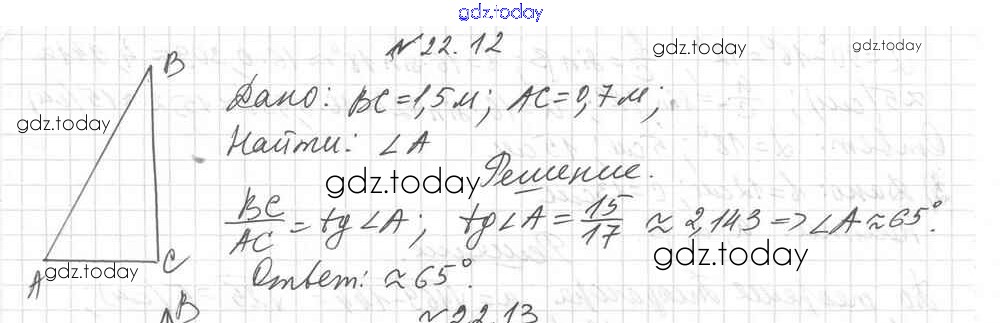 gdz.today
№ 22.12
gdz.today gdz.today
B
Дано: BC = 1,5 м; AC = 0,7 м;
gdz.today
Найти: ∠A
Решение.
gdz.today
BC/AC = tg∠A; tg∠A = 15/17 ≈ 2,143 => ∠A ≈ 65°.
gdz.today
A C
gdz.today
Ответ: ≈ 65°.
B
№ 22.13